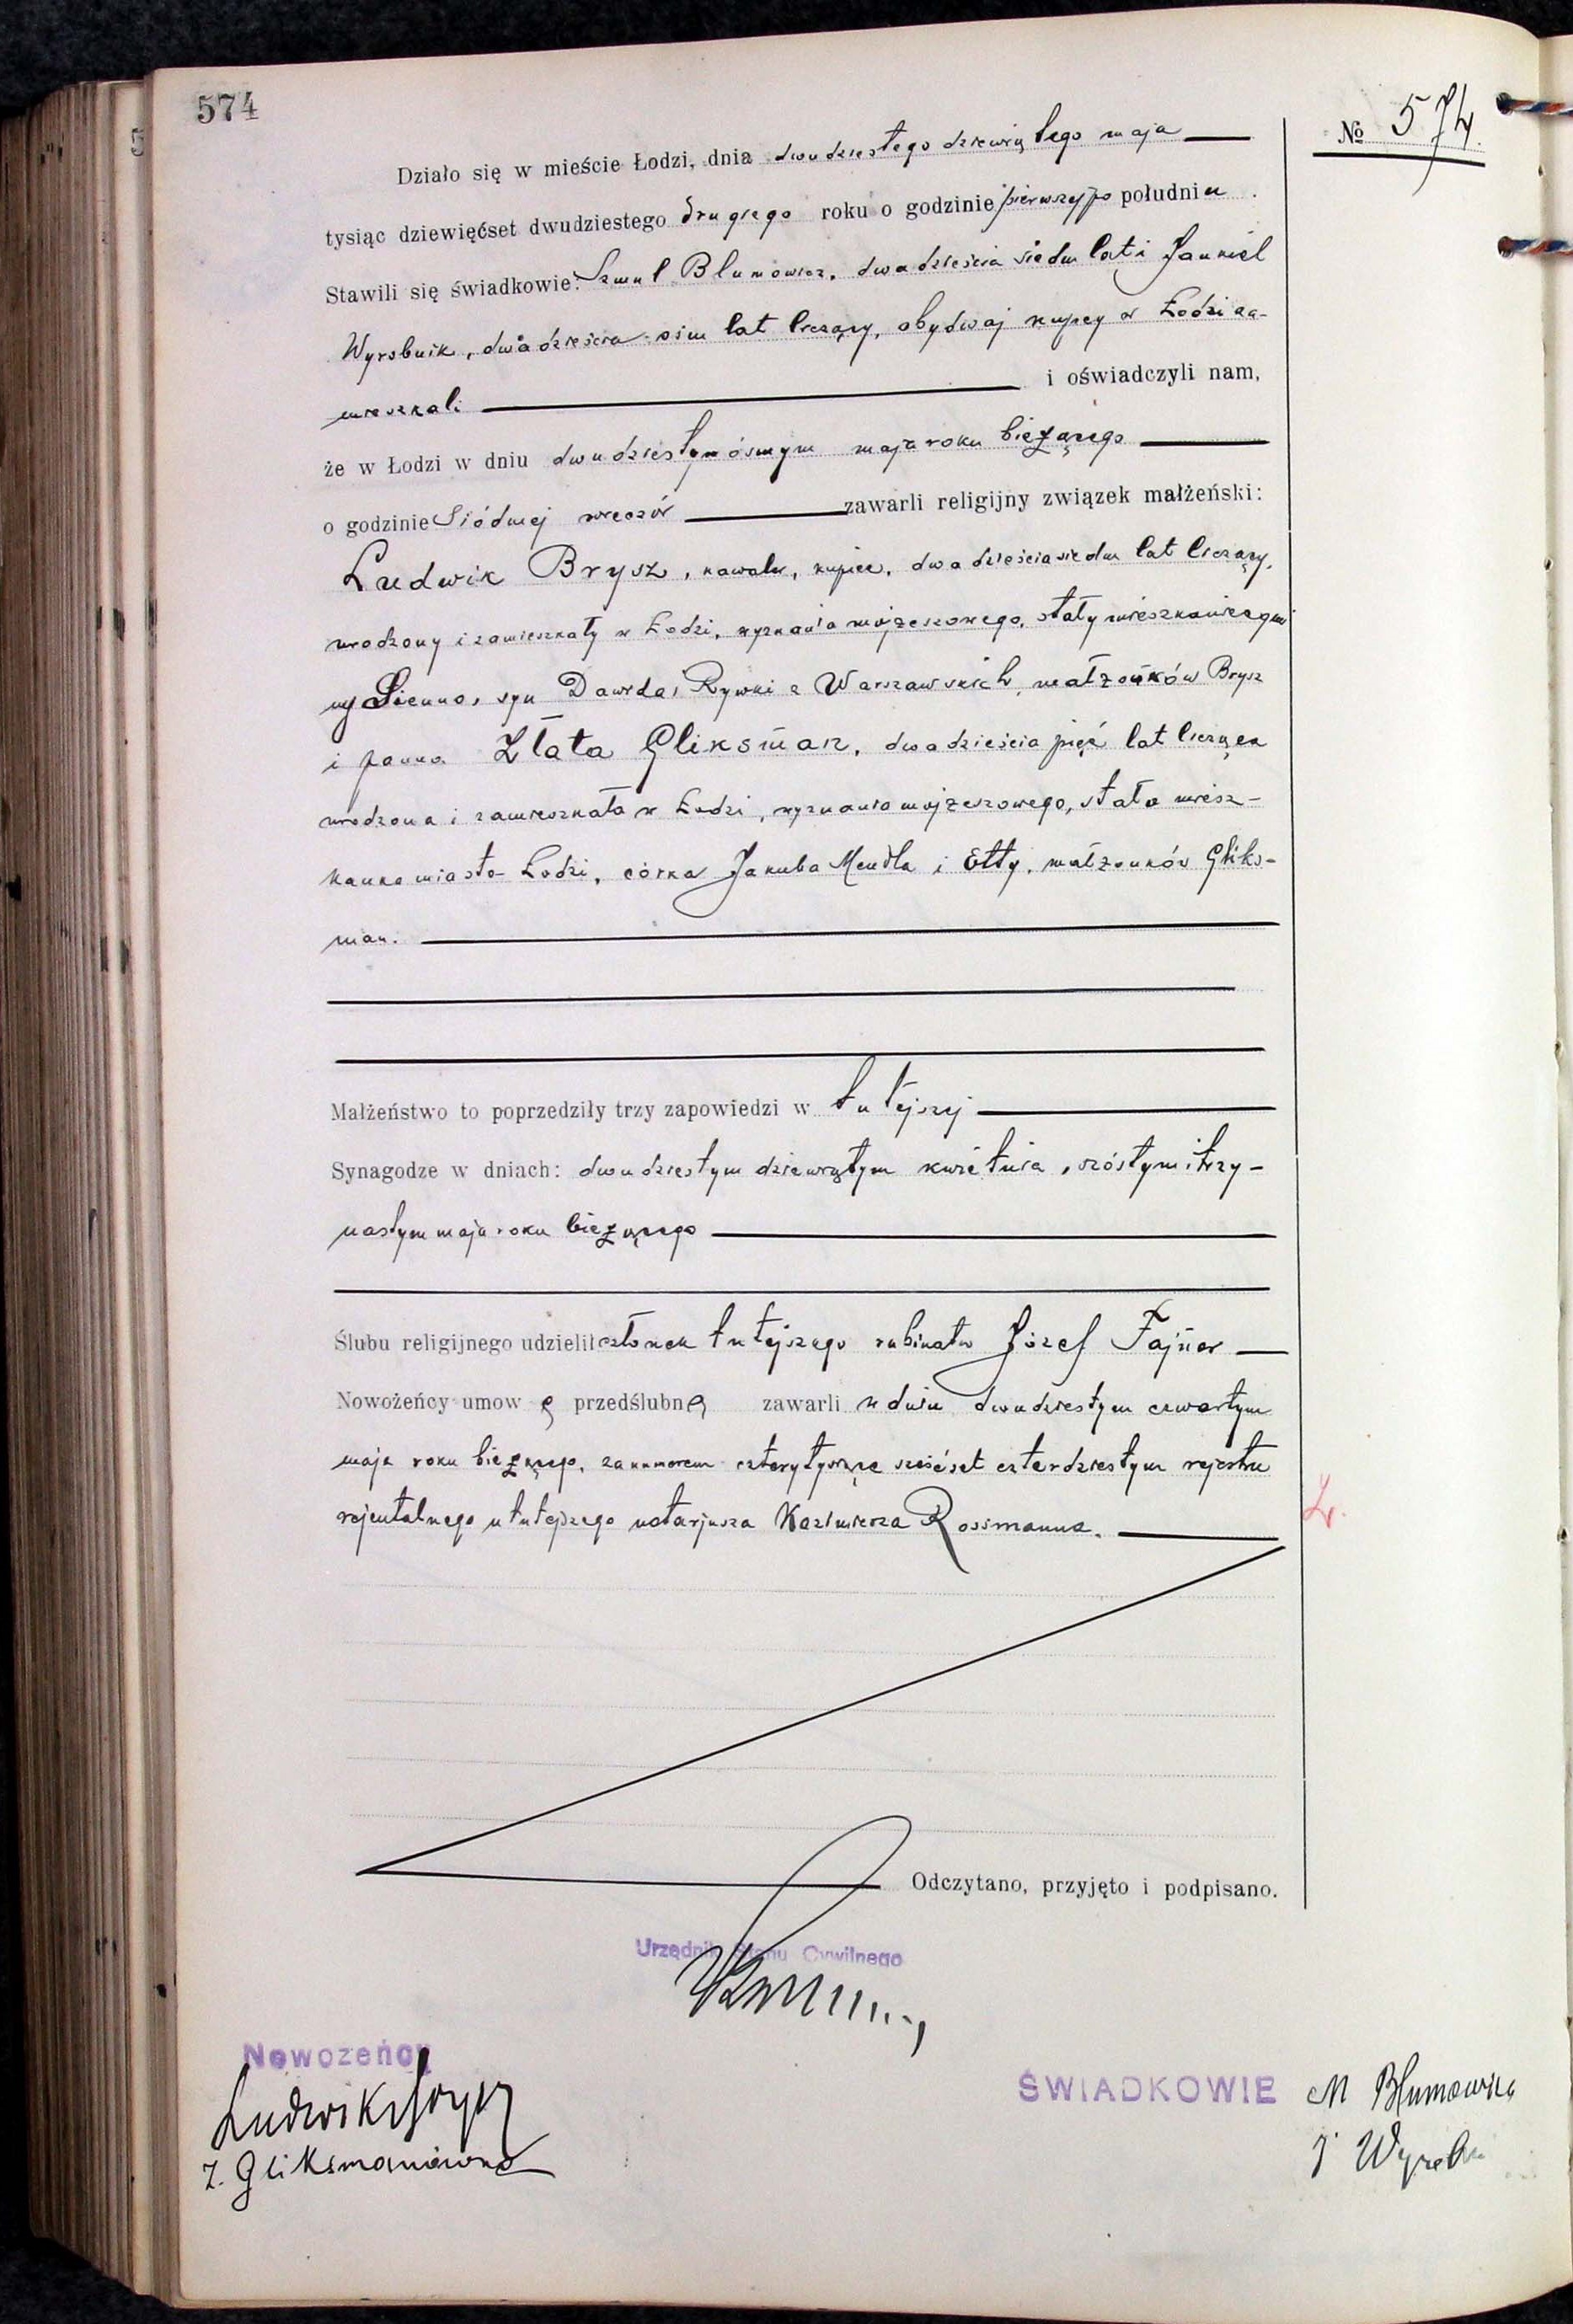 574
№ 574.
Działo się w mieście Łodzi, dnia dwudziestego dziewiątego maja
tysiąc dziewięćset dwudziestego drugiego roku o godzinie pierwszej po południu.
Stawili się świadkowie: Szmul Blumowicz, dwadzieścia siedm lat i Jankiel
Wyrobnik, dwadzieścia ośm lat liczący, obydwaj kupcy w Łodzi za-
mieszkali i oświadczyli nam,
że w Łodzi w dniu dwudziestym ósmym maja roku bieżącego
o godzinie siódmej wieczór zawarli religijny związek małżeński:
Ludwik Brysz, kawaler, kupiec, dwadzieścia siedm lat liczący,
urodzony i zamieszkały w Łodzi, wyznania mojżeszowego, stały mieszkaniec gmi
ny Sienno, syn Dawida i Rywki z Warszawskich, małżonków Brysz
i panna Złata Gliksman, dwadzieścia pięć lat licząca
urodzona i zamieszkała w Łodzi, wyznania mojżeszowego, stała miesz-
kanka miasta Łodzi, córka Jakuba Mendla i Etty, małżonków Gliks-
man.
Małżeństwo to poprzedziły trzy zapowiedzi w tutejszej
Synagodze w dniach: dwudziestym dziewiątym kwietnia, szóstym i trzy-
nastym maja roku bieżącego
Ślubu religijnego udzielił członek tutejszego rabinatu Józef Fajner
Nowożeńcy umowę przedślubną zawarli w dniu dwudziestym czwartym
maja roku bieżącego, za numerem czterytysiące sześćset czterdziestym rejestru
rejentalnego u tutejszego notarjusza Kazimierza Rossmanna.
Odczytano, przyjęto i podpisano.
Urzędnik Stanu Cywilnego
Nowożeńcy
Ludwik Brysz
Z. Gliksmanówna
ŚWIADKOWIE M Blumowicz
J Wyrob